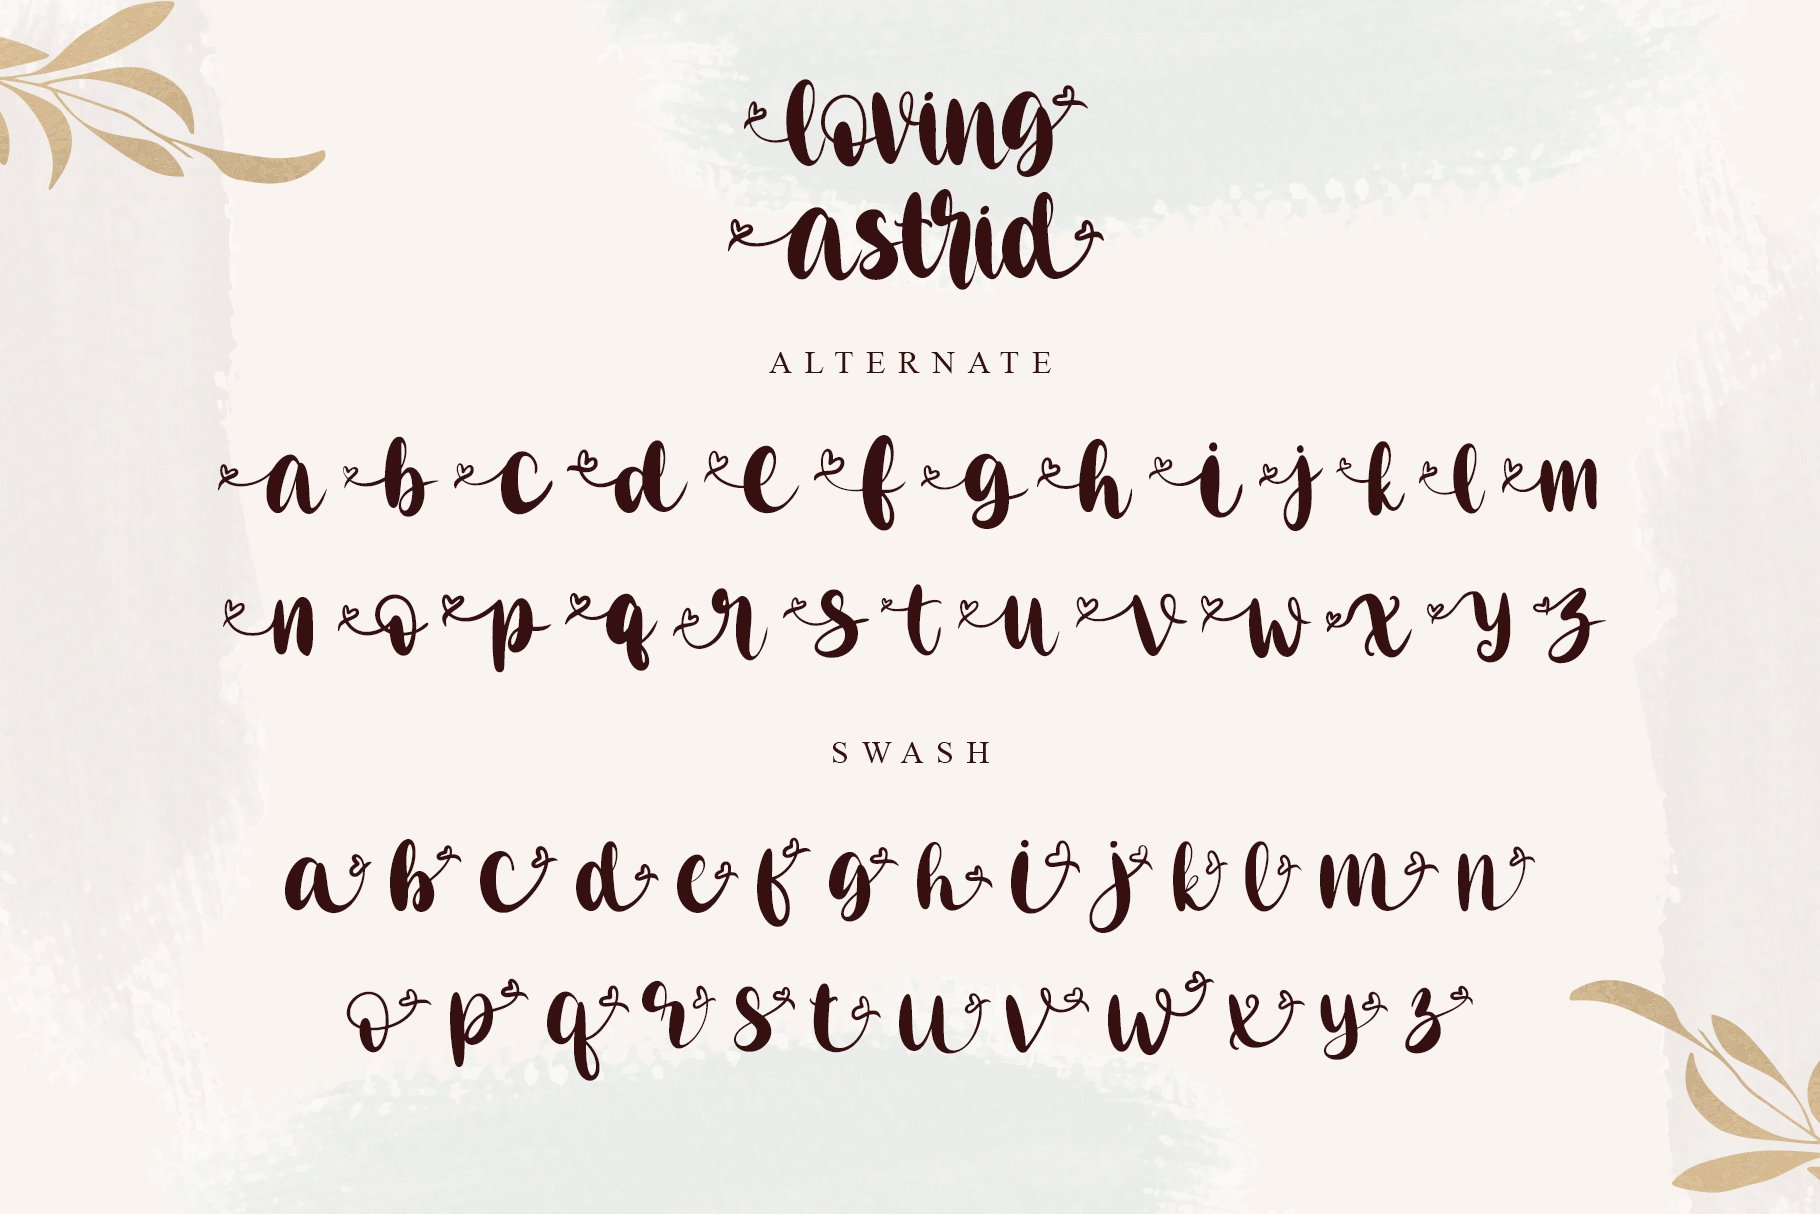 loving
astrid
ALTERNATE
a b c d e f g h i j k l m
n o p q r s t u v w x y z
SWASH
a b c d e f g h i j k l m n
o p q r s t u v w x y z